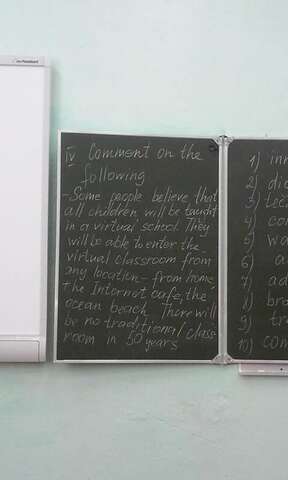 IV Comment on the
following
- Some people believe that
all children will be taught
in a virtual school. They
will be able to enter the
virtual classroom from
any location - from home,
the Internet cafe, the
ocean beach. There will
be no traditional class-
room in 50 years
1)
2)
3)
4)
5)
6)
7)
8)
9)
10)